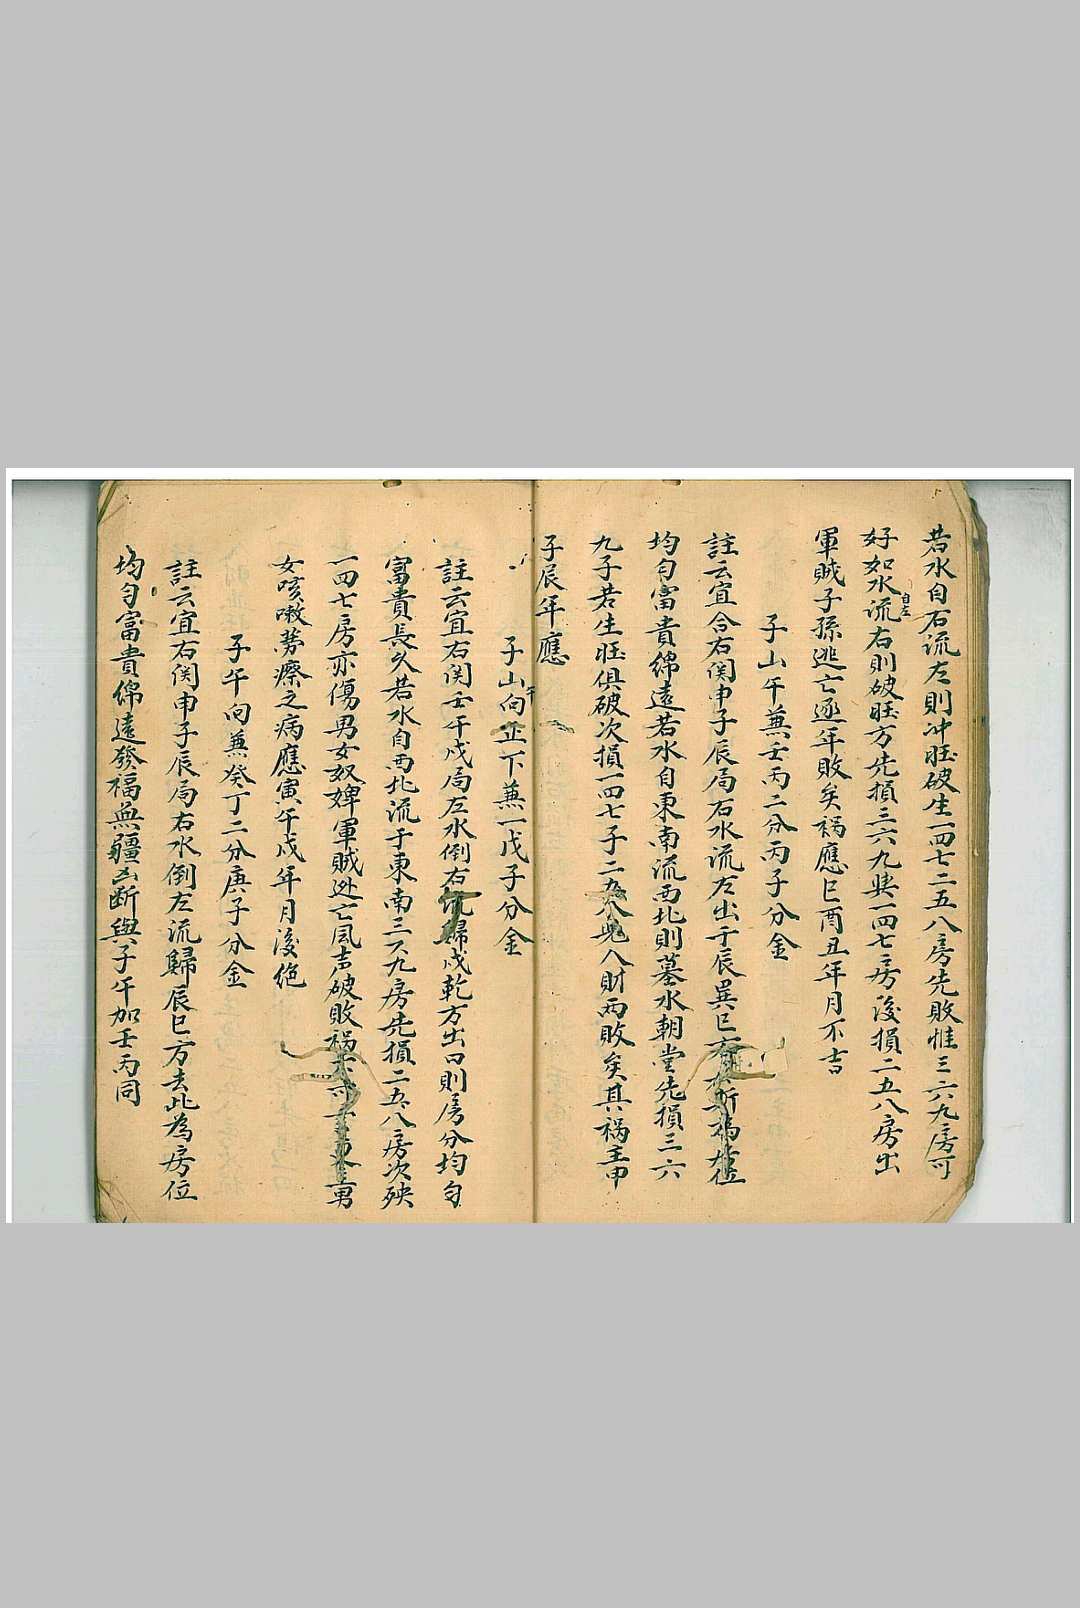 若水自右流左則冲旺破生一四七二五八房先敗惟三六九房可
好如水流自左右則破旺方先損三六九與一四七房後損二五八房出
軍賊子孫逃亡逐年敗矣禍應巳酉丑年月不吉
子山午兼壬丙二分丙子分金
註云宜合右関申子辰局右水流左出于辰巽巳方
均匀富貴綿遠若水自東南流西北則墓水朝堂先損三六
九子若生旺俱破次損一四七子二五八財両敗矣其禍主申
子辰年應
子山午向正下兼一戊子分金
註云宜右関壬午戌局左水倒右流歸戌乾方出口則房分均匀
富貴長久若水自西北流于東南三六九房先損二五八房次殃
一四七房亦傷男女奴婢軍賊逃亡凨吉破敗禍 男
女咳嗽勞瘵之病應寅午戌年月後絶
子午向兼癸丁二分庚子分金
註云宜右関申子辰局右水倒左流歸辰巳方去此為房位
均匀富貴綿遠發福無疆凶断與子午加壬丙同